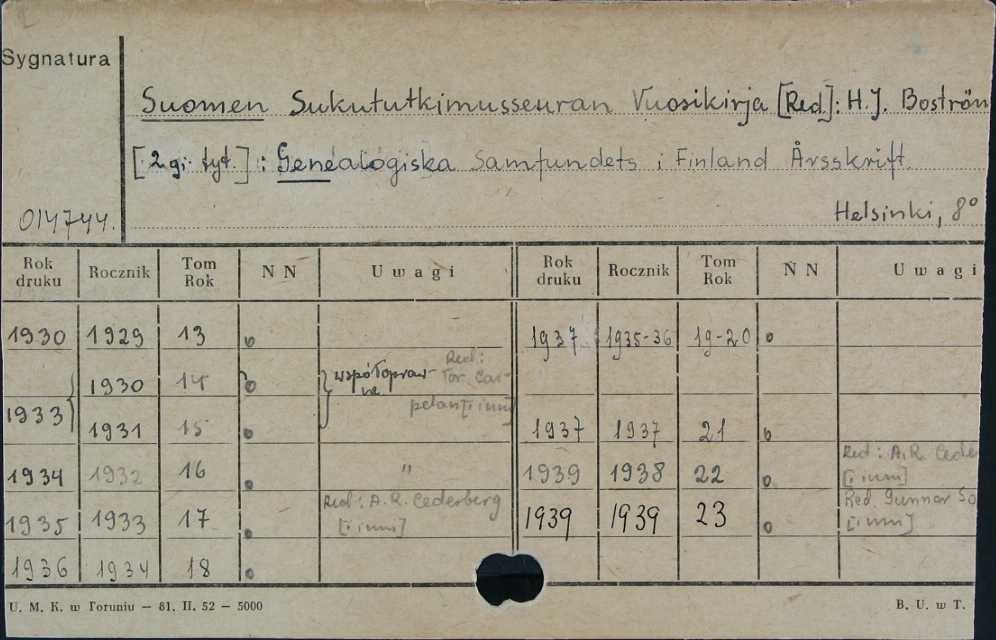 Sygnatura
Suomen Sukututkimusseuran Vuosikirja [Red.]: H.J. Boström
[2gi tyt.]: Genealogiska Samfundets i Finland Årsskrift.
014744.
Helsinki, 8°
Rok druku Rocznik Tom Rok N N Uwagi Rok druku Rocznik Tom Rok N N Uwagi
1930 1929 13 o 1937 1935-36 19-20 o
1933 1930 14 o współopraw- Red:
ne Tor. Car-
pelan [i inni]
1931 15 o 1937 1937 21 o
1934 1932 16 o " 1939 1938 22 o Red: A.R. Cede
[i inni]
1935 1933 17 o Red: A.R. Cederberg 1939 1939 23 o Red. Gunnar So
[i inni] [i inni]
1936 1934 18 o
U. M. K. w Toruniu — 81. II. 52 — 5000
B. U. w T.